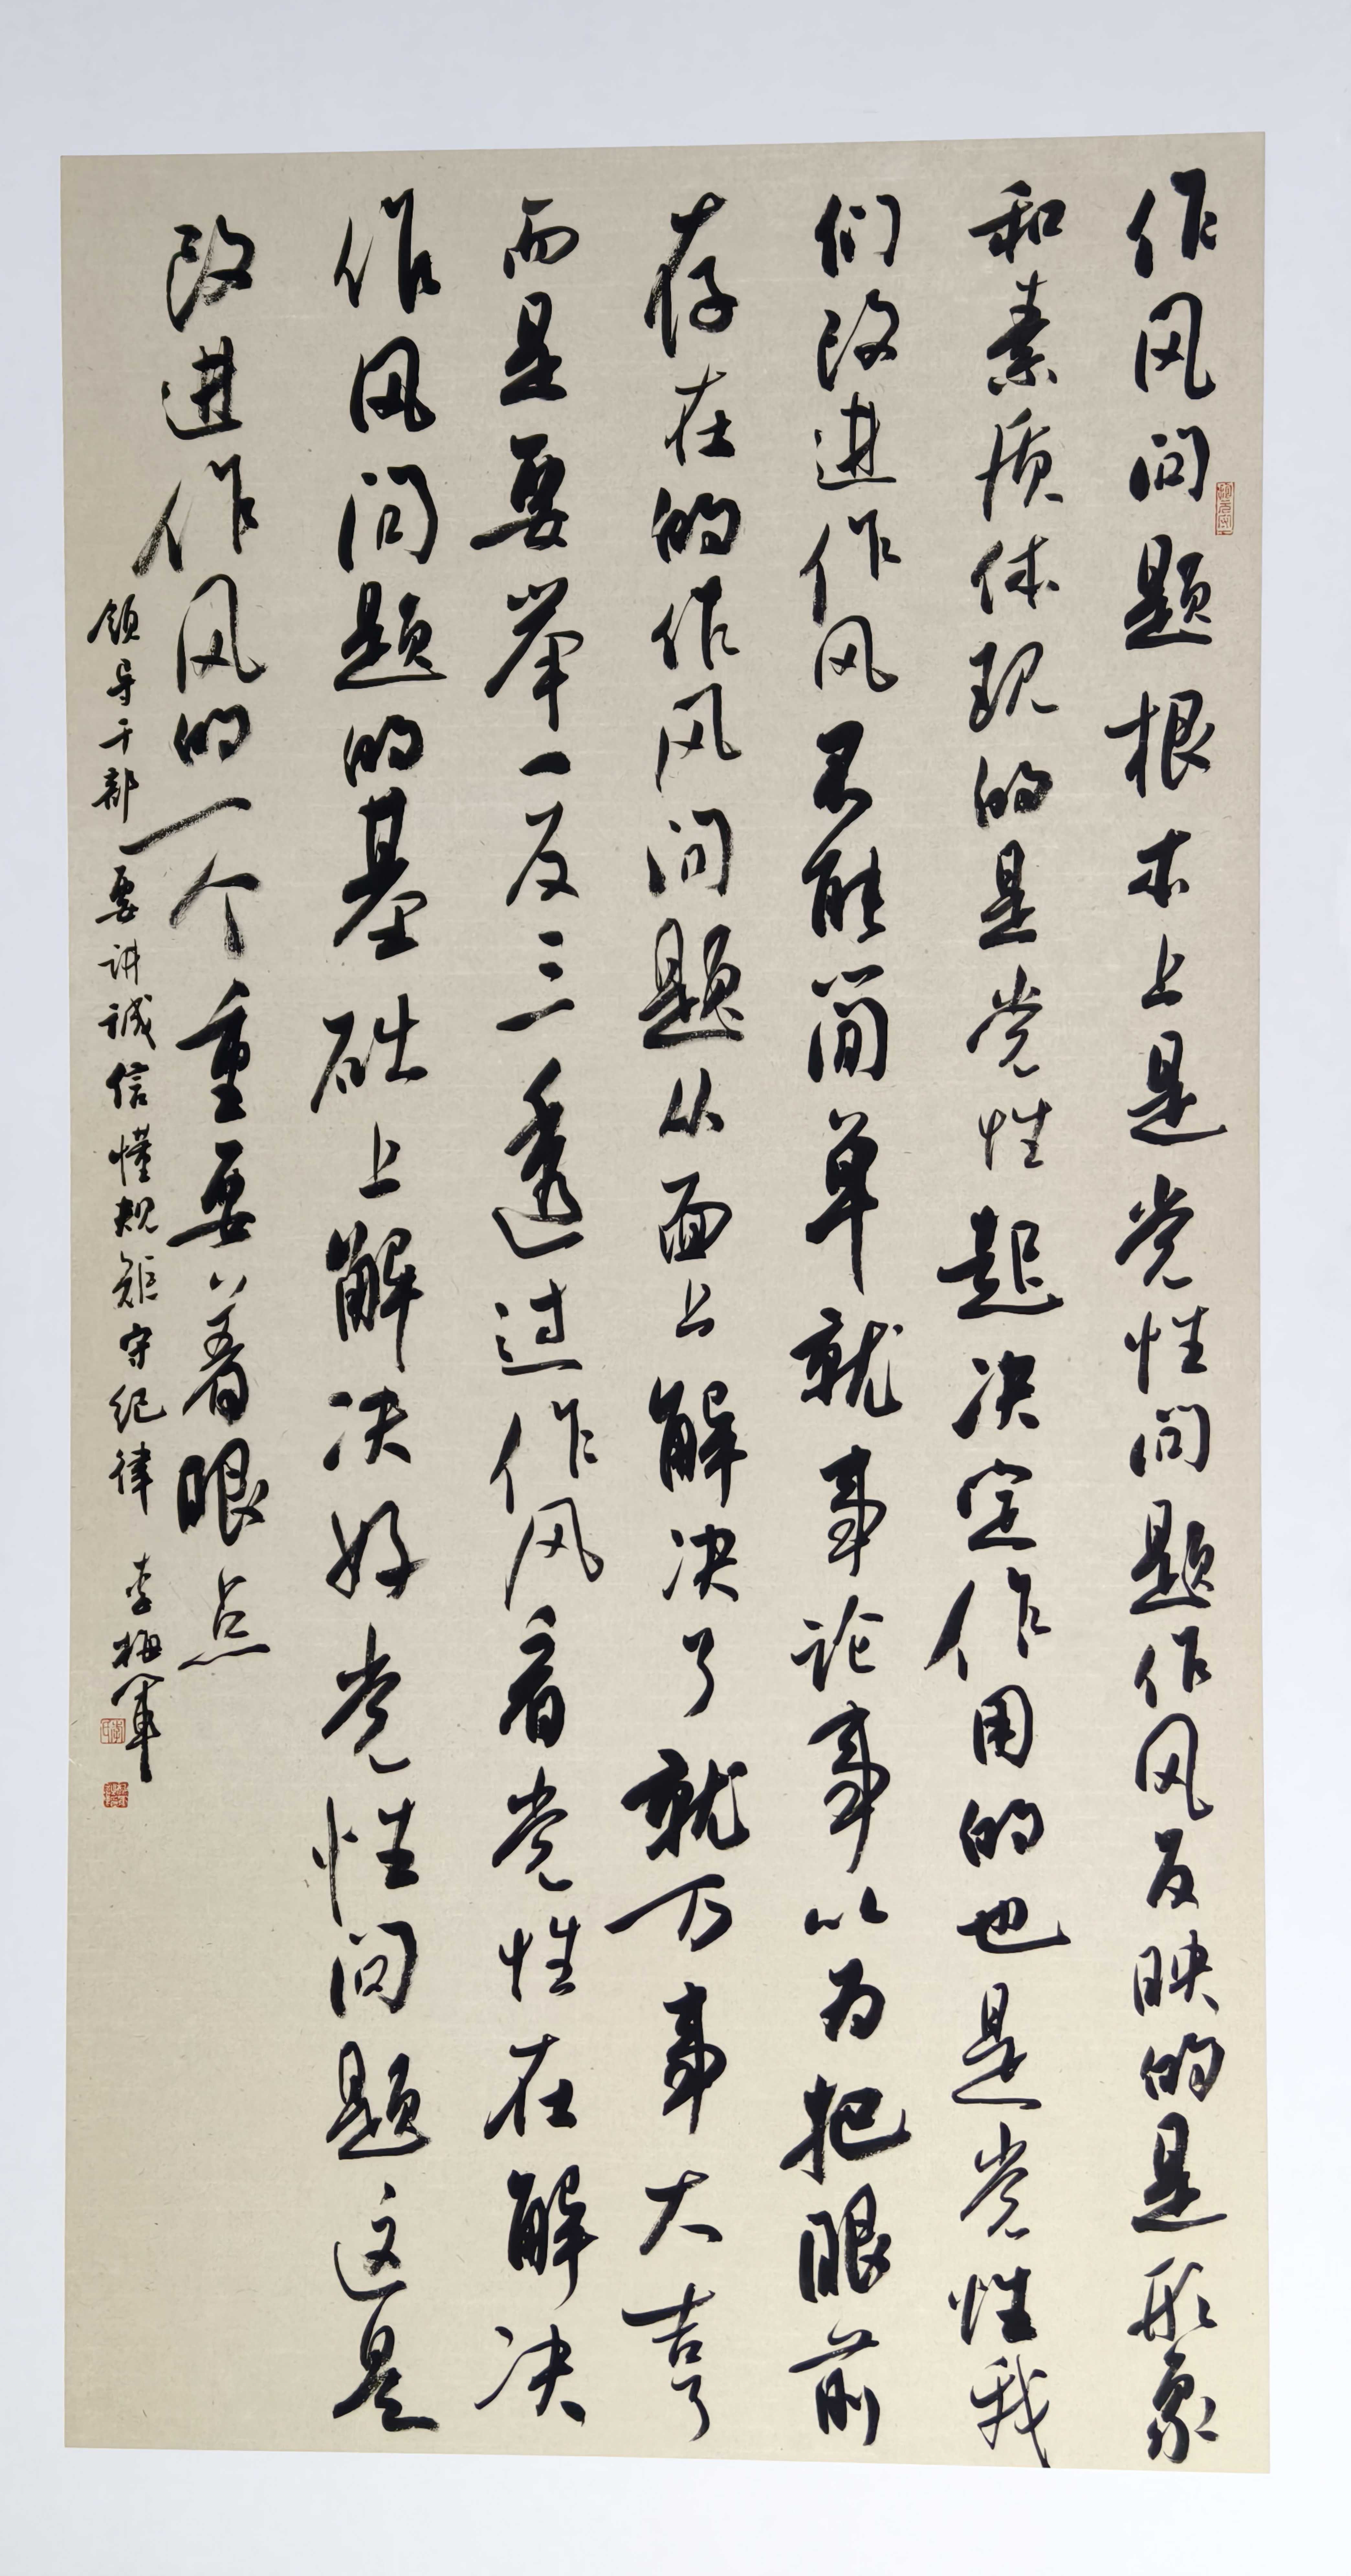 作风问题根本上是党性问题作风反映的是形象
和素质体现的是党性起决定作用的也是党性我
们改进作风不能简单就事论事以为把眼前
存在的作风问题从面上解决了就万事大吉了
而是要举一反三透过作风看党性在解决
作风问题的基础上解决好党性问题这是
改进作风的一个重要着眼点
领导干部要讲诚信懂规矩守纪律 李梅军